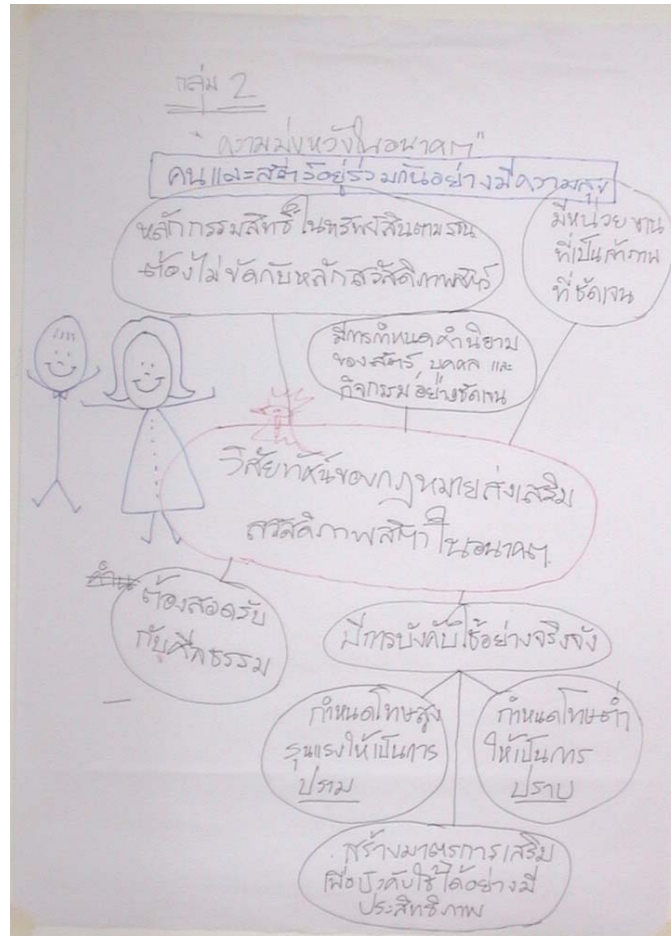 กลุ่ม 2
"ความมุ่งหวังในอนาคต"
คนและสัตว์อยู่ร่วมกันอย่างมีความสุข
หลักกรรมสิทธิ์ในทรัพย์สินตาม
ต้องไม่ขัดกับหลักสวัสดิภาพสัตว์
มีหน่วยงาน
ที่เป็น
ที่ชัดเจน
มีการกำหนดคำนิยาม
ของสัตว์ บุคคล และ
กิจกรรมอย่างชัดเจน
วิสัยทัศน์ของกฎหมายส่งเสริม
สวัสดิภาพสัตว์ในอนาคต
ต้องสอดรับ
กับศีลธรรม
มีการบังคับใช้อย่างจริงจัง
กำหนดโทษสูง
รุนแรงให้เป็นการ
ปราม
กำหนดโทษต่ำ
ให้เป็นการ
ปราบ
สร้างมาตรการเสริม
เพื่อบังคับใช้ได้อย่างมี
ประสิทธิภาพ